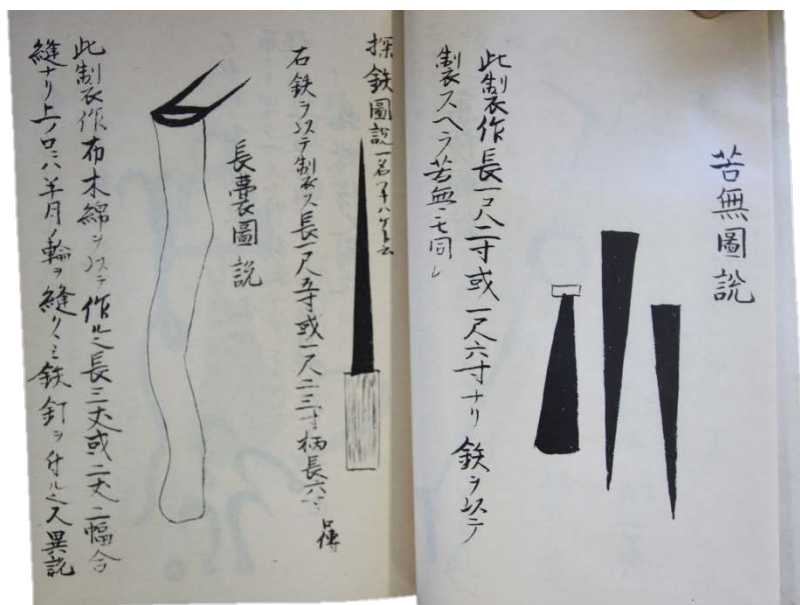 苦無圖説
此製作長一尺二寸或一尺六寸ナリ鉄ヲ以テ
製スヘラ苦無ニモ同し
探鉄圖説一名アナハケト云
右鉄ヲ以テ製ス長一尺五寸或一尺二三寸柄長六寸
口傳
長嚢圖説
此製作布木綿ヲ以テ作ル之長三丈或二丈二幅合
縫ナリ上ノ口ニハ半月ノ輪ヲ縫クヽミ鉄釘ヲ付ル之又異説